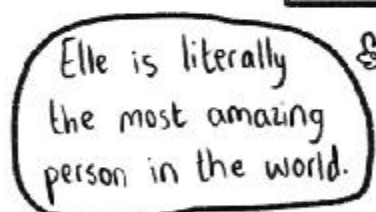 Elle is literally
the most amazing
person in the world.